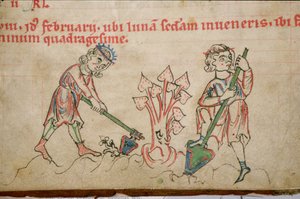 KL
februarij. ubi lunā scdam inveneris. ibi
minum quadragesime.